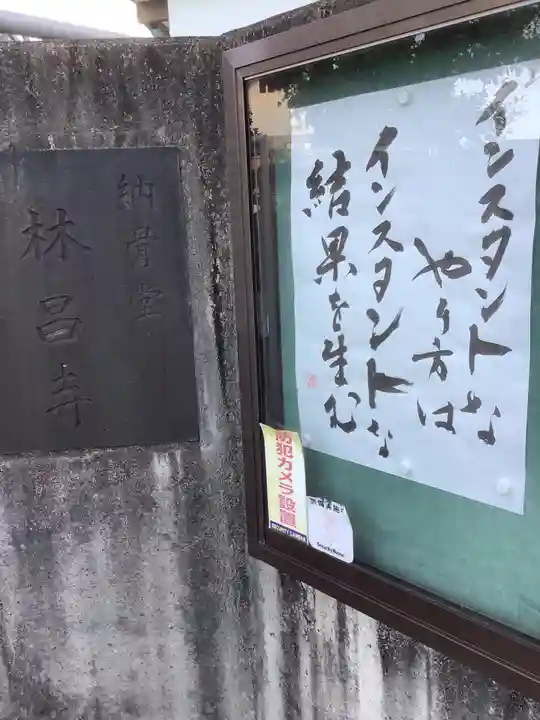 インスタントな
やり方は
インスタントな
結果を生む
納骨堂
林昌寺
防犯カメラ設置